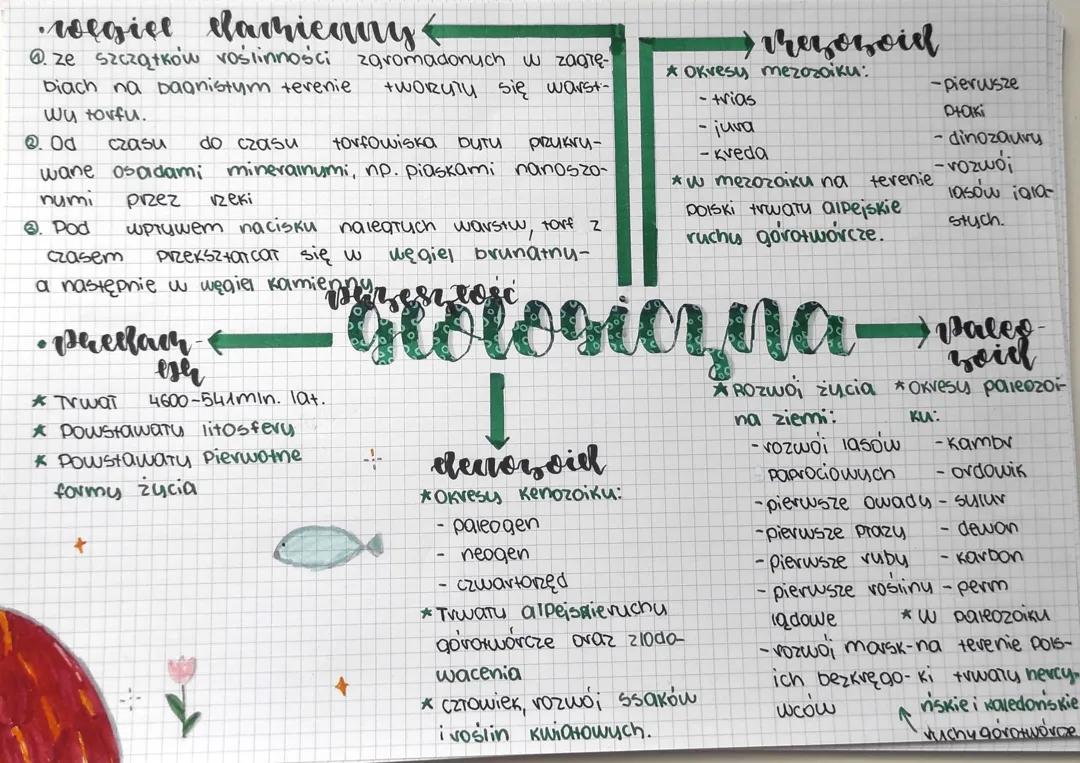 • węgiel kamienny
①. ze szczątków roślinności zgromadonych w zagłę-
biach na bagnistym terenie tworzyły się warst-
wy torfu.
②. Od czasu do czasu torfowiska były przykry-
wane osadami mineralnymi, np. piaskami nanoszo-
nymi przez rzeki
③. Pod wpływem nacisku naległych warstw, torf z
czasem przekształcał się w węgiel brunatny-
a następnie w węgiel kamienny
mezozoik
* Okresy mezozoiku:
- trias
- jura
- kreda
* w mezozoiku na terenie
polski trwały alpejskie
ruchy górotwórcze.
- pierwsze
ptaki
- dinozaury
- rozwój
lasów igla-
stych.
przeszłość
giologiczna
• prekam-
* Trwał 4600-541mln. lat.
* Powstawały litosfery
* Powstawały Pierwotne
formy życia
kenozoik
* Okresy Kenozoiku:
- paleogen
- neogen
- czwartorzęd
* Trwały alpejskie ruchy
górotwórcze oraz zloda-
wacenia
* człowiek, rozwój ssaków
i roślin kwiatowych.
paleo-
zoik
* Rozwój życia
na ziemi:
- rozwój lasów
paprociowych
- pierwsze owady
- pierwsze płazy
- pierwsze ryby
- pierwsze rośliny
lądowe
- rozwój morsk-
ich bezkręgo-
wców
* Okresy paleozoi-
ku:
- kambr
- ordowik
- sylur
- dewon
- karbon
- perm
* W paleozoiku
na terenie pols-
ki trwały hercy-
ńskie i kaledońskie
ruchy górotwórcze